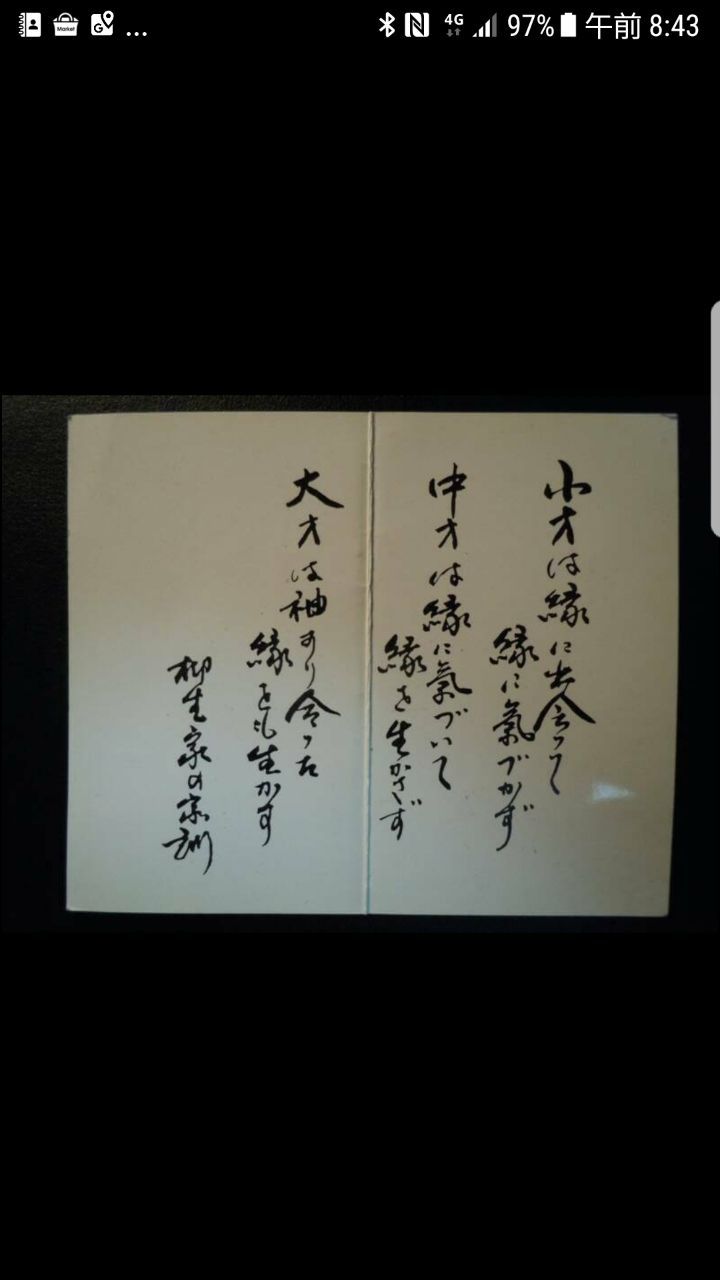 97% 午前 8:43
4G
Market
G
小才は縁に出会って
縁に氣づかず
中才は縁に氣づいて
縁を生かさず
大才は袖すり合った
縁をも生かす
柳生家の家訓